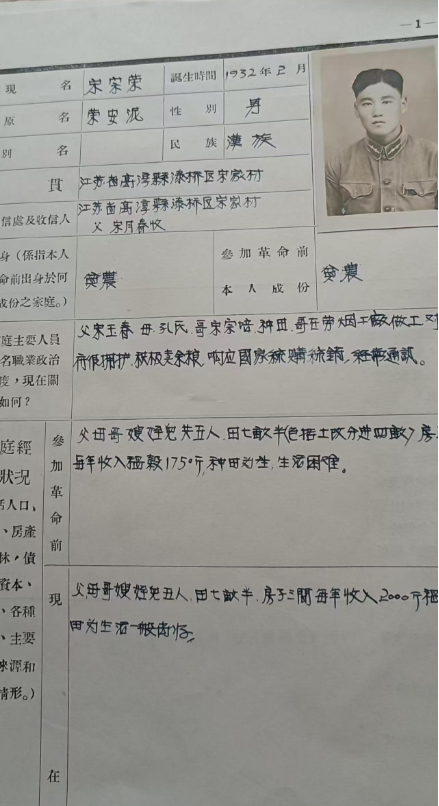 —1—
現 名 宋家荣 誕生時間 1932年2月
原 名 荣安泥 性 別 男
別 名 民 族 漢族
貫 江苏省高淳縣漆桥区宋家村
信處及收信人 江苏省高淳縣漆桥区宋家村
父 宋月春收
身(係指本人
命前出身於何
成份之家庭。) 贫農 參加革命前
本人成份 贫農
庭主要人員
名職業政治
度,現在關
如何?
父宋王春 母 孔氏、哥宋家培、种田、哥在劳烟工廠做工对
府很拥护,积极卖余粮,响应國家統購統銷,经常通訊。
庭經
狀況
活人口、
、房產
林,債
資本、
、各種
、主要
來源和
情形。)
參加革命前
父母哥嫂姪兒共五人、田七畝半(包括土改分進四畝)房
每年收入稻穀1750斤,种田为生,生活困难。
現在
父母哥嫂姪兒五人、田七畝半、房子三間每年收入2000斤稻
田为生活一般尚好。